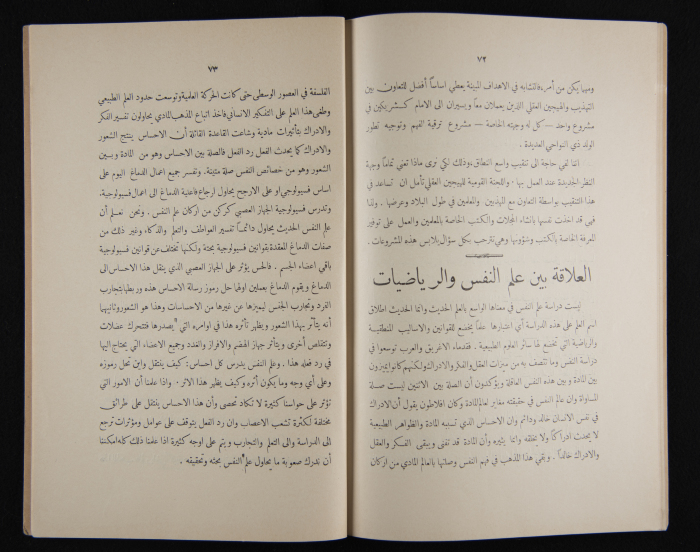 ٧٢
ومهما يكن من أمره فالتشابه في الاهداف المبينة يعطي اساساً أفضل للتعاون بين
التهذيب والهيجين العقلي اللذين يعملان معاً ويسيران الى الامام كشريكين في
مشروع واحد — كل له وجهته الخاصة — مشروع ترقية الفهم وتوجيه تطور
الولد ذي النواحي العديدة .
اننا لفي حاجة الى تثقيب واسع النطاق ، وذلك لكي نرى ماذا تعني تماماً وجهة
النظر الجديدة عند العمل بها . واللجنة القومية للهيجين العقلي تأمل ان تساعد في
هذا التثقيب بواسطة التعاون مع المهذبين والمعلمين في طول البلاد وعرضها . ولذا
فهي قد اخذت نفسها بانشاء المجلات والكتب الخاصة بالمعلمين والعمل على توفير
المعرفة الخاصة بالكتب وشؤونها وهي ترحب بكل سؤال يلابس هذه المشروعات .
العلاقة بين علم النفس والرياضيات
ليست دراسة علم النفس في معناها الواسع بالعلم الحديث وانما الحديث اطلاق
اسم العلم على هذه الدراسة أي اعتبارها علماً يخضع للقوانين والاساليب المنطقية
والرياضية التي تخضع لها سائر العلوم الطبيعية . فقدماء الاغريق والعرب توسعوا في
دراسة النفس وما تتصف به من ميزات العقل والفكر والادراك ولكنهم كانوا يميزون
بين المادة وبين هذه النفس العاقلة ويؤكدون أن الصلة بين الاثنين ليست صلة
المساواة وان عالم النفس في حقيقته مغاير لعالم المادة وكان افلاطون يقول أن الادراك
في نفس الانسان خالد ودائم وان الاحساس الذي تسببه المادة والظواهر الطبيعية
لا يحدث ادراكاً ولا يخلقه وانما يثيره وأن المادة قد تفنى ويبقى الفكر والعقل
والادراك خالداً . وبقي هذا المذهب في فهم النفس وصلتها بالعالم المادي من اركان
٧٣
الفلسفة في العصور الوسطى حتى كانت الحركة العلمية وتوسعت حدود العلم الطبيعي
وطغى هذا العلم على التفكير الانساني فأخذ اتباع المذهب المادي يحاولون تفسير الفكر
والادراك بتأثيرات مادية وشاعت القاعدة القائلة أن الاحساس ينتج الشعور
والادراك كما يحدث الفعل رد الفعل فالصلة بين الاحساس وهو من المادة وبين
الشعور وهو من خصائص النفس صلة متينة . وتفسر جميع اعمال الدماغ اليوم على
اساس فسيولوجي او على الارجح يحاول ارجاع فاعلية الدماغ الى اعمال فسيولوجية .
وتدرس فسيولوجية الجهاز العصبي كركن من اركان علم النفس . ونحن نعلم أن
علم النفس الحديث يحاول دائماً تفسير العواطف والتعلم والذكاء وغير ذلك من
صفات الدماغ المعقدة بقوانين فسيولوجية بحتة ولكنها تختلف عن قوانين فسيولوجية
باقي اعضاء الجسم . فالحس يؤثر على الجهاز العصبي الذي ينقل هذا الاحساس الى
الدماغ ويقوم الدماغ بعملين اولهما حل رموز رسالة الاحساس هذه وربطها بتجارب
الفرد وتجارب الجنس ليميزها عن غيرها من الاحساسات وهذا هو الشعور وثانيهما
أنه يتأثر بهذا الشعور ويظهر تأثره هذا في اوامره التي يصدرها فتتحرك عضلات
وتتقلص أخرى ويتأثر جهاز الهضم والافراز والغدد وجميع الاعضاء التي يحتاج اليها
في رد فعله هذا . وعلم النفس يدرس كل احساس : كيف ينتقل واين تحل رموزه
وعلى أي وجه وما يكون أثره وكيف يظهر هذا الاثر . واذا علمنا أن الامور التي
تؤثر على حواسنا كثيرة لا تكاد تحصى وأن هذا الاحساس ينتقل على طرائق
مختلفة لكثرة تشعب الاعصاب وان رد الفعل يتوقف على عوامل ومؤثرات ترجع
الى الدراسة والى التعلم والتجارب ويتم على اوجه كثيرة اذا علمنا ذلك كله امكننا
أن ندرك صعوبة ما يحاول علم النفس بحثه وتحقيقه .